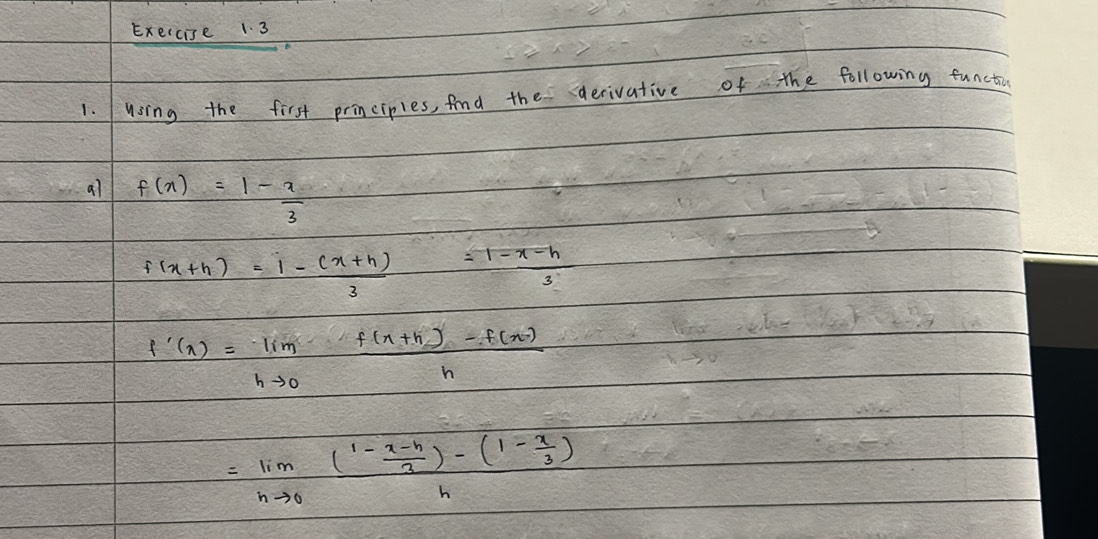 Exercise 1.3
1. Using the first principles, find the derivative of the following function
a) f(x) = 1 - x/3
f(x+h) = 1 - (x+h)/3 = 1 - x-h/3
f'(x) = lim h→0 f(x+h) - f(x) / h
= lim h→0 (1 - x-h/3) - (1 - x/3) / h